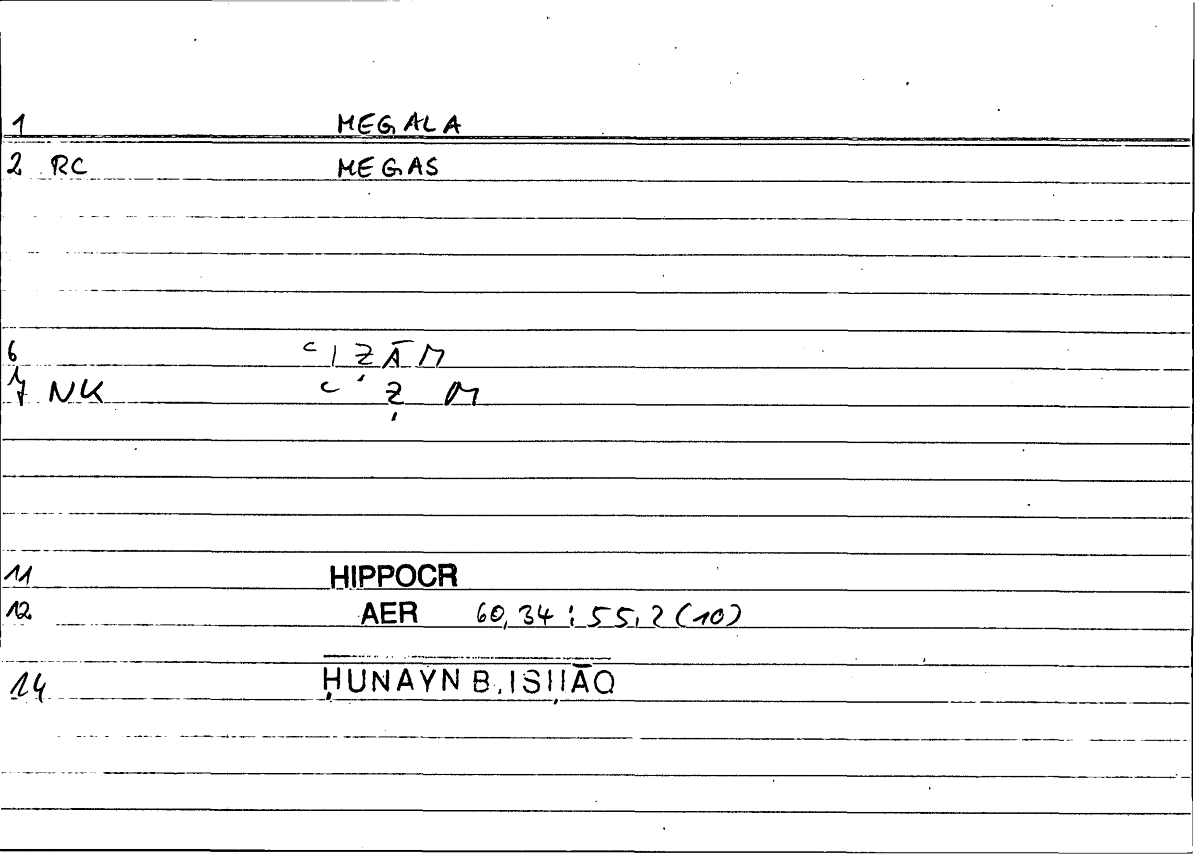 1 MEGALA
2 RC MEGAS
6 ʿIẒĀM
7 NK ʿ Ẓ M
11 HIPPOCR
12 AER 60,34 : 55,2 (10)
14 ḤUNAYN B. ISḤĀQ